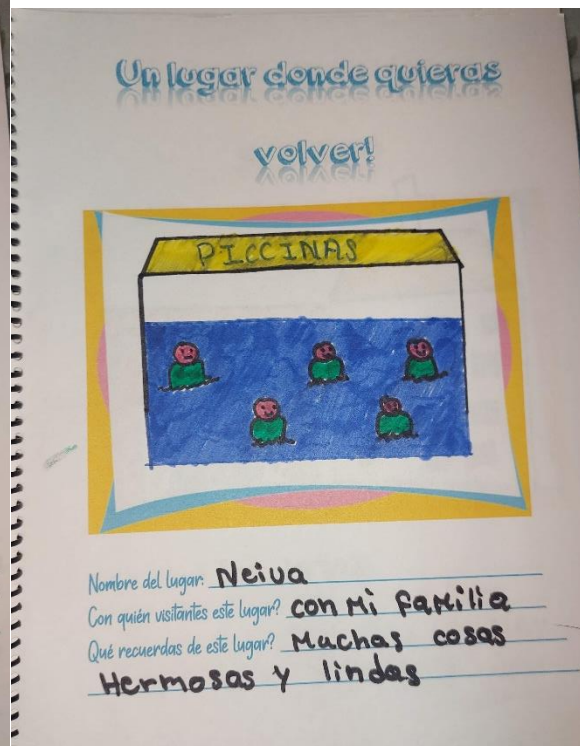 Un lugar donde quieras
volver!
PICCINAS
Nombre del lugar: Neiva
Con quién visitantes este lugar? con Mi familia
Qué recuerdas de este lugar? Muchas cosas
Hermosas y lindas